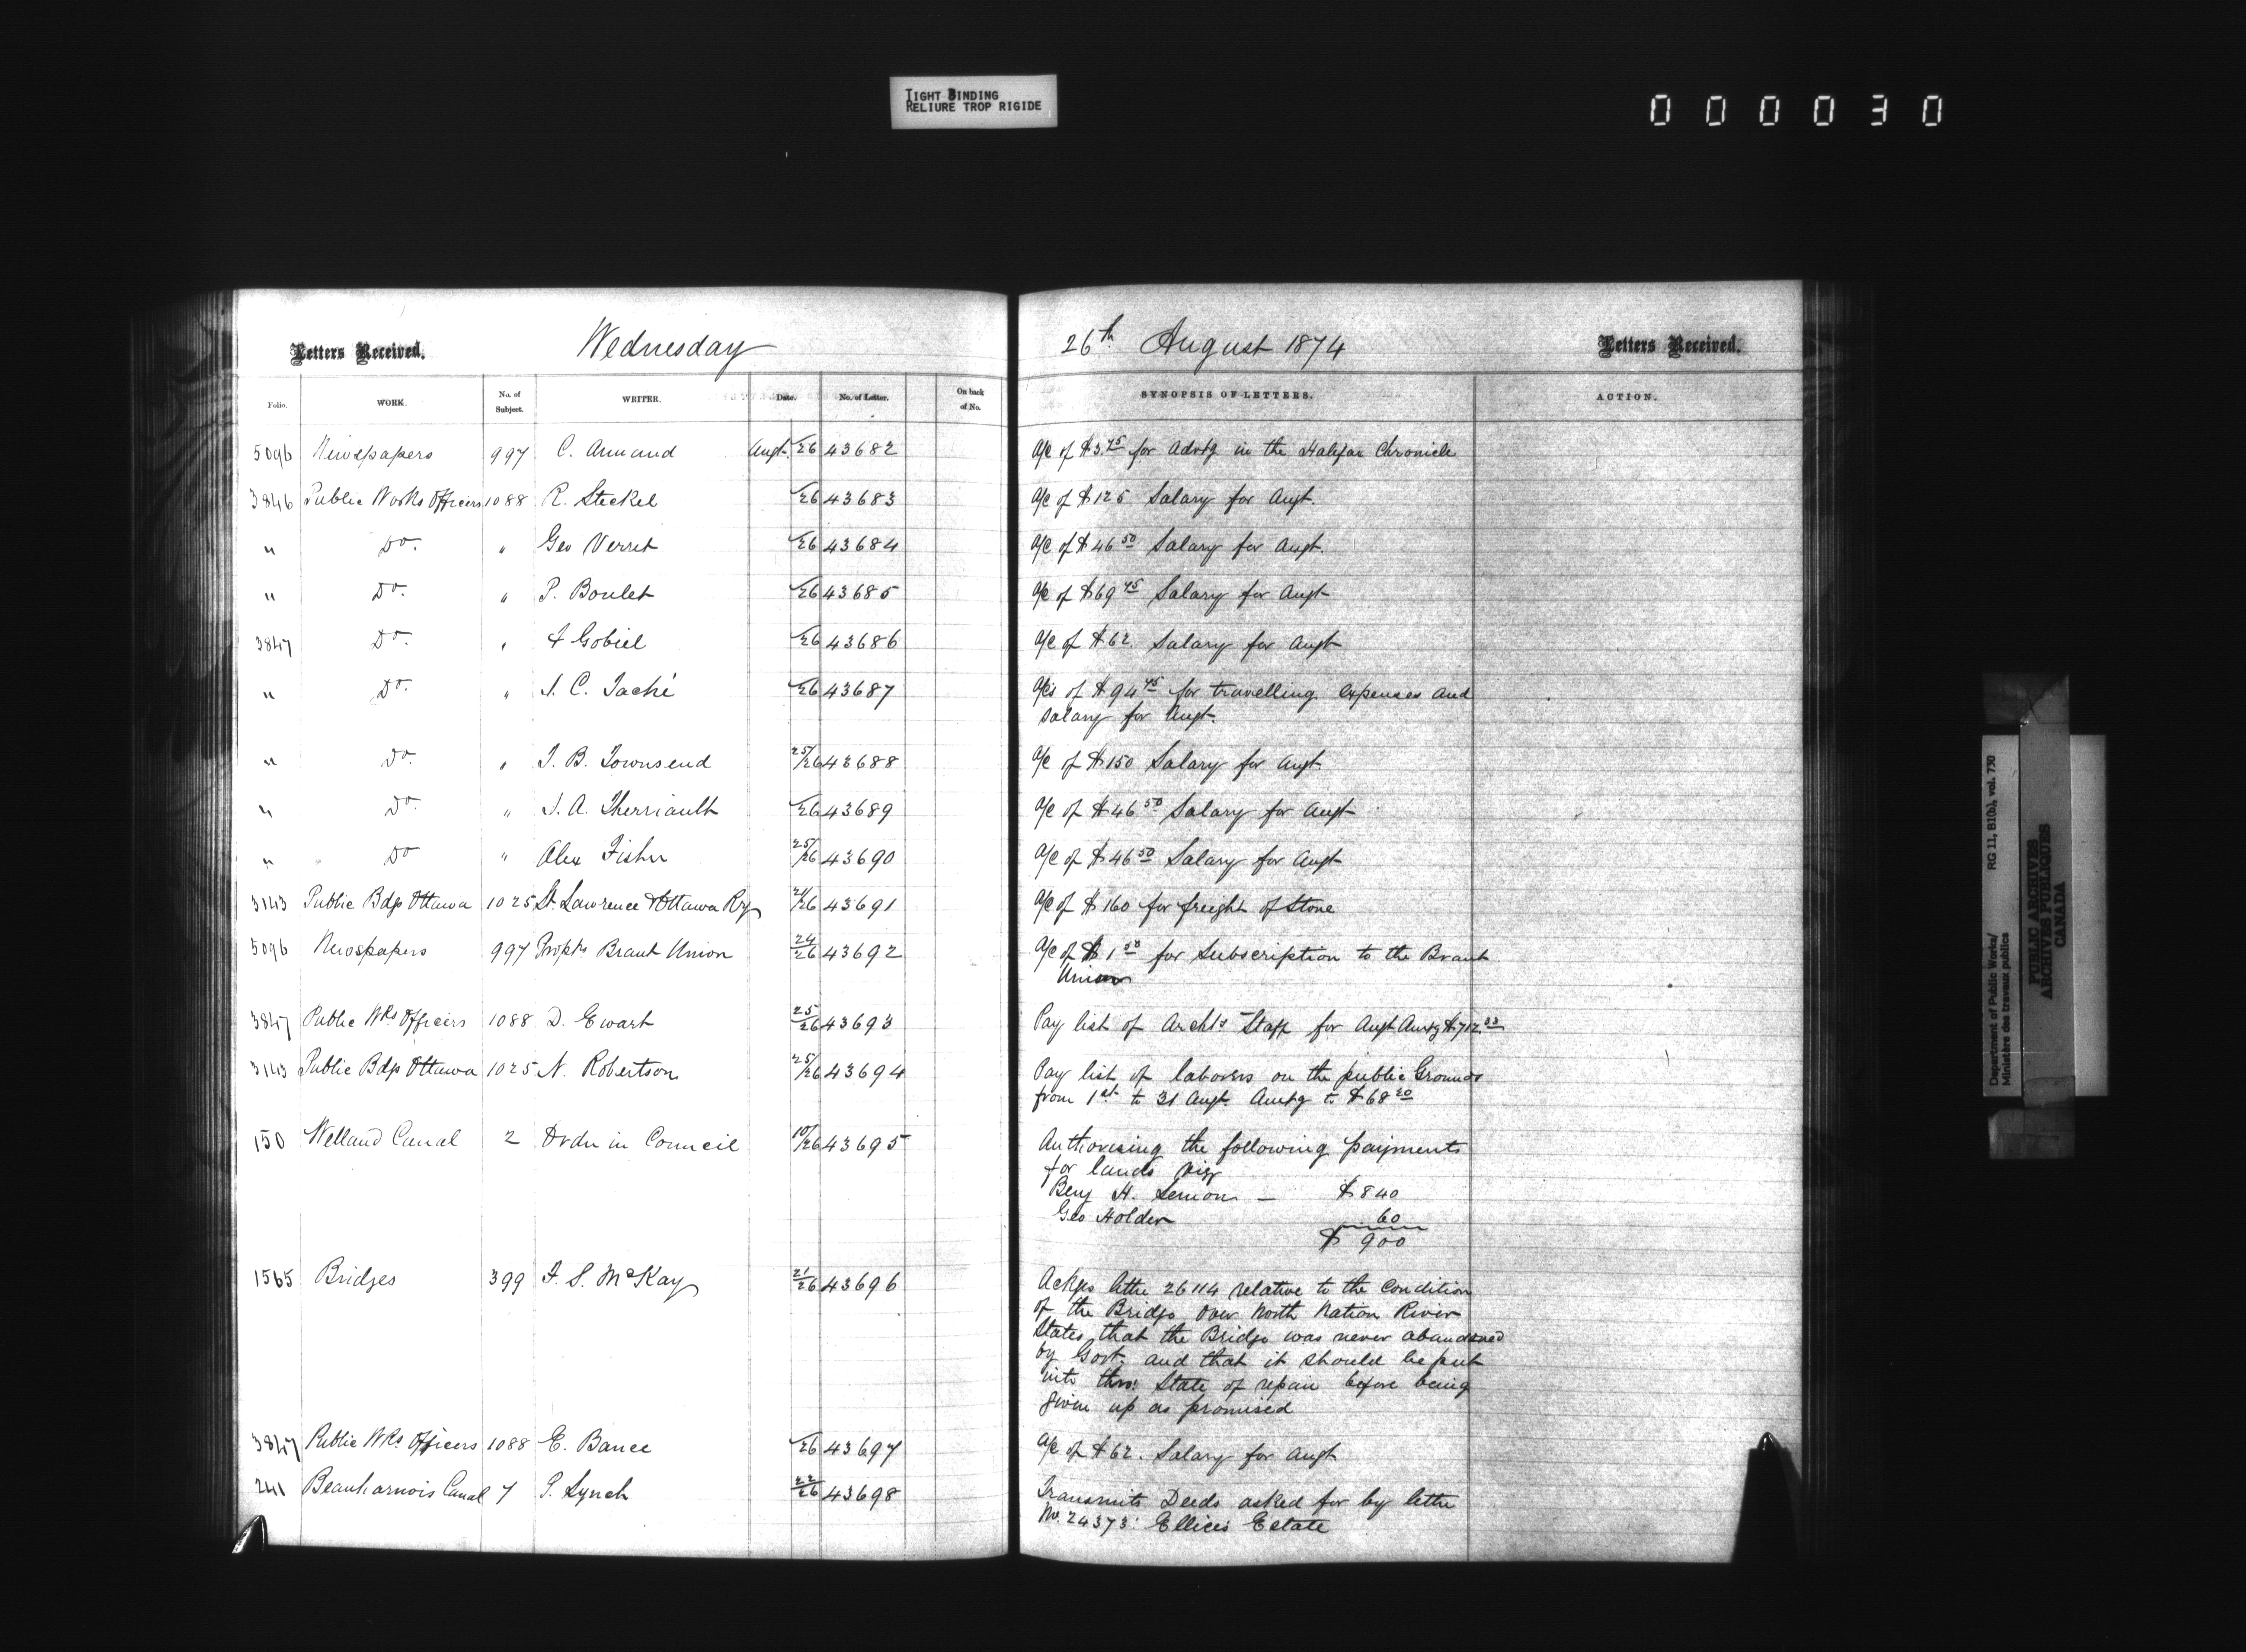 TIGHT BINDING
RELIURE TROP RIGIDE
000030
Letters Received. Wednesday 26th August 1874 Letters Received.
Folio. WORK. No. of Subject. WRITER. Date. No. of Letter. On back of No. SYNOPSIS OF LETTERS. ACTION.
5096 Newspapers 997 C. Annand Augt. 26 43682 a/c of $3.75 for Advtg in the Halifax Chronicle
3846 Public Works Officers 1088 R. Steckel 26 43683 a/c of $125 Salary for Augt.
" Do. " Geo Verret 26 43684 a/c of $46 50 Salary for Augt.
" Do. " P. Boulet 26 43685 a/c of $69 75 Salary for Augt
3847 Do. " A Gobiel 26 43686 a/c of $62. Salary for Augt
" Do. " J. C. Taché 26 43687 a/cs of $94 75 for travelling expenses and
Salary for Augt.
" Do. " J. B. Townsend 25/26 43688 a/c of $150 Salary for Augt.
" Do. " J. A. Therriault 26 43689 a/c of $46 50 Salary for Augt
" Do " Alex Fisher 25/26 43690 a/c of $46 50 Salary for Augt
3143 Public Bdgs Ottawa 1025 St. Lawrence & Ottawa Ry 26 43691 a/c of $160 for freight of Stone
5096 Newspapers 997 Proptrs Brant Union 24/26 43692 a/c of $1 50 for Subscription to the Brant
Union
3847 Public Wks Officers 1088 D. Ewart 25/26 43693 Pay list of Archts Staff for Augt Amtg $712 33
3143 Public Bdgs Ottawa 1025 N. Robertson 25/26 43694 Pay list of laborers on the public Grounds
from 1st to 31 Augt. Amtg to $68 20
150 Welland Canal 2 Order in Council 10/26 43695 Authorising the following payments
for lands viz
Benj H. Lemon — $840
Geo Holder 60
$ 900
1565 Bridges 399 F. S. McKay 21/26 43696 Ackgs lettre 26114 relative to the condition
of the Bridge over North Nation River
States that the Bridge was never abandoned
by Govt. and that it should be put
into thro' State of repair before being
given up as promised
3847 Public Wks Officers 1088 E. Bance 26 43697 a/c of $62. Salary for Augt
241 Beauharnois Canal 7 P. Lynch 22/26 43698 Transmits Deeds asked for by lettre
No. 24373: Ellices Estate
Department of Public Works/ RG 11, B1(b), vol. 730
Ministère des travaux publics
PUBLIC ARCHIVES
ARCHIVES PUBLIQUES
CANADA